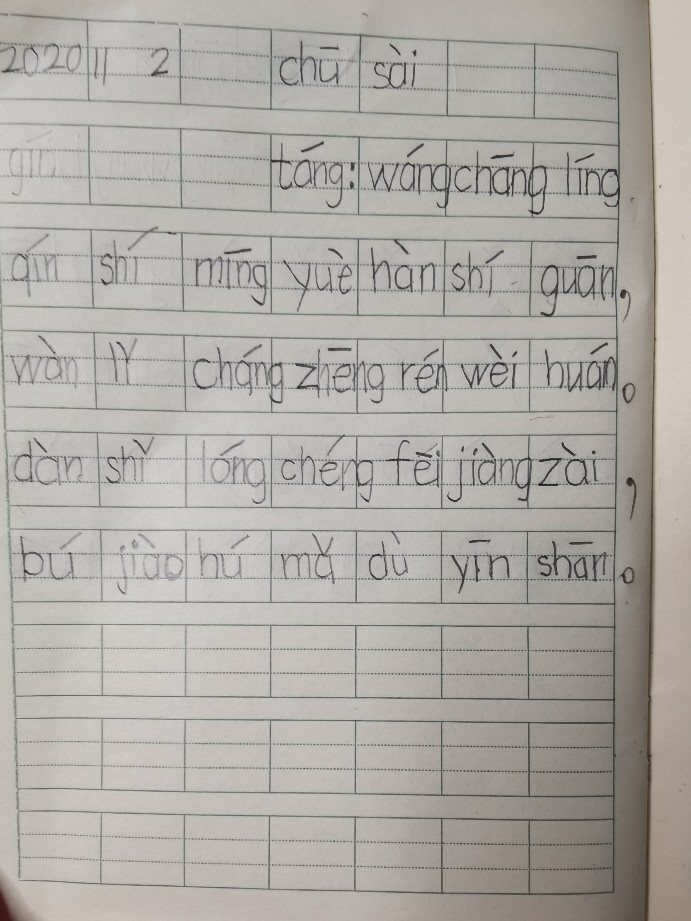 2020 11 2 chū sài
táng: wáng chāng líng
qín shí mīng yuè hàn shí guān,
wàn lǐ cháng zhēng rén wèi huán。
dàn shǐ lóng chéng fēi jiàng zài,
bú jiào hú mǎ dù yīn shān。